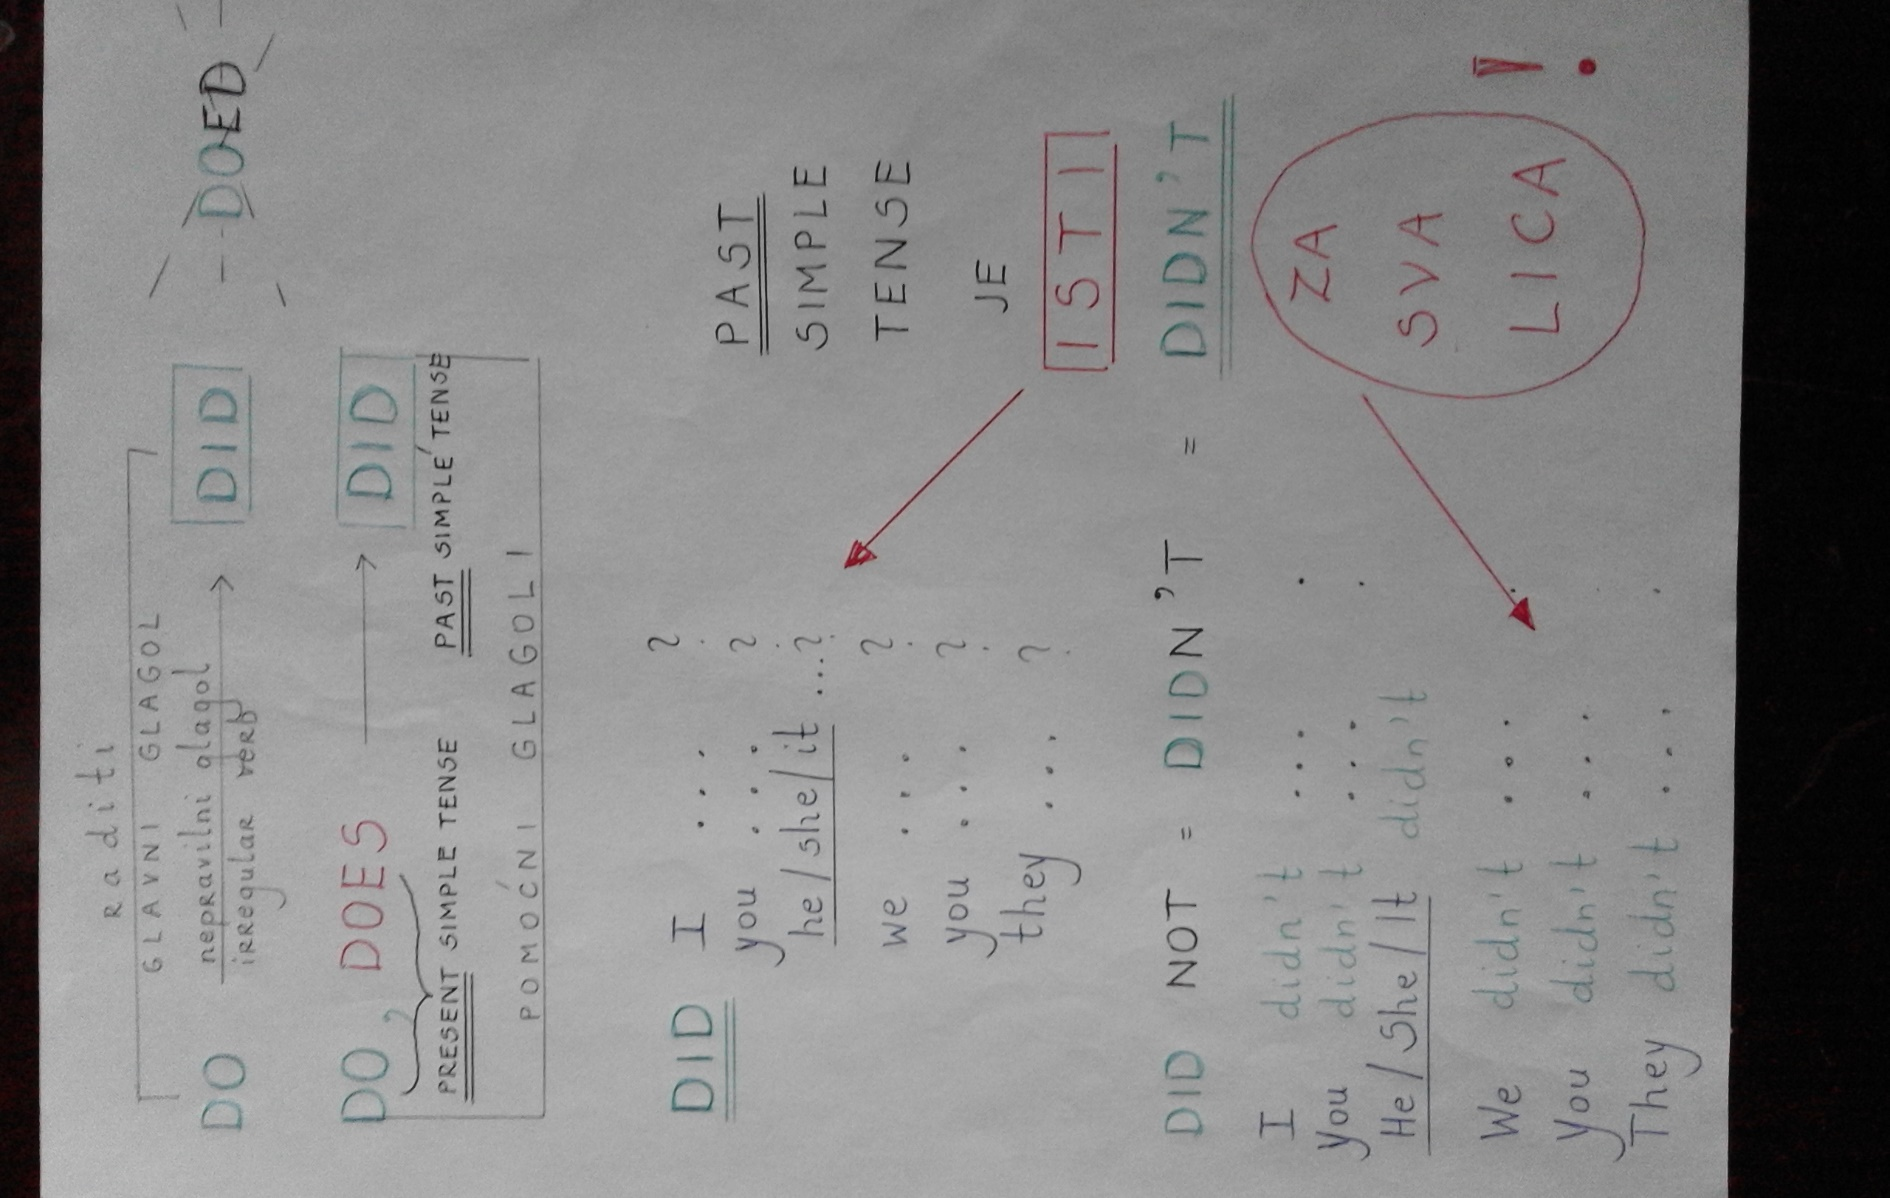 Raditi
GLAVNI GLAGOL
DO nepravilni glagol DID DOED
irregular verb
DO, DOES DID
PRESENT SIMPLE TENSE PAST SIMPLE TENSE
POMOĆNI GLAGOLI
DID I ... ?
you ... ?
he/she/it ...?
we ... ?
you ... ?
they ... ?
PAST
SIMPLE
TENSE
JE
ISTI
DID NOT = DIDN'T = DIDN'T
I didn't ... .
You didn't ... .
He/She/It didn't
We didn't ... .
You didn't ... .
They didn't ... .
ZA
SVA
LICA
!